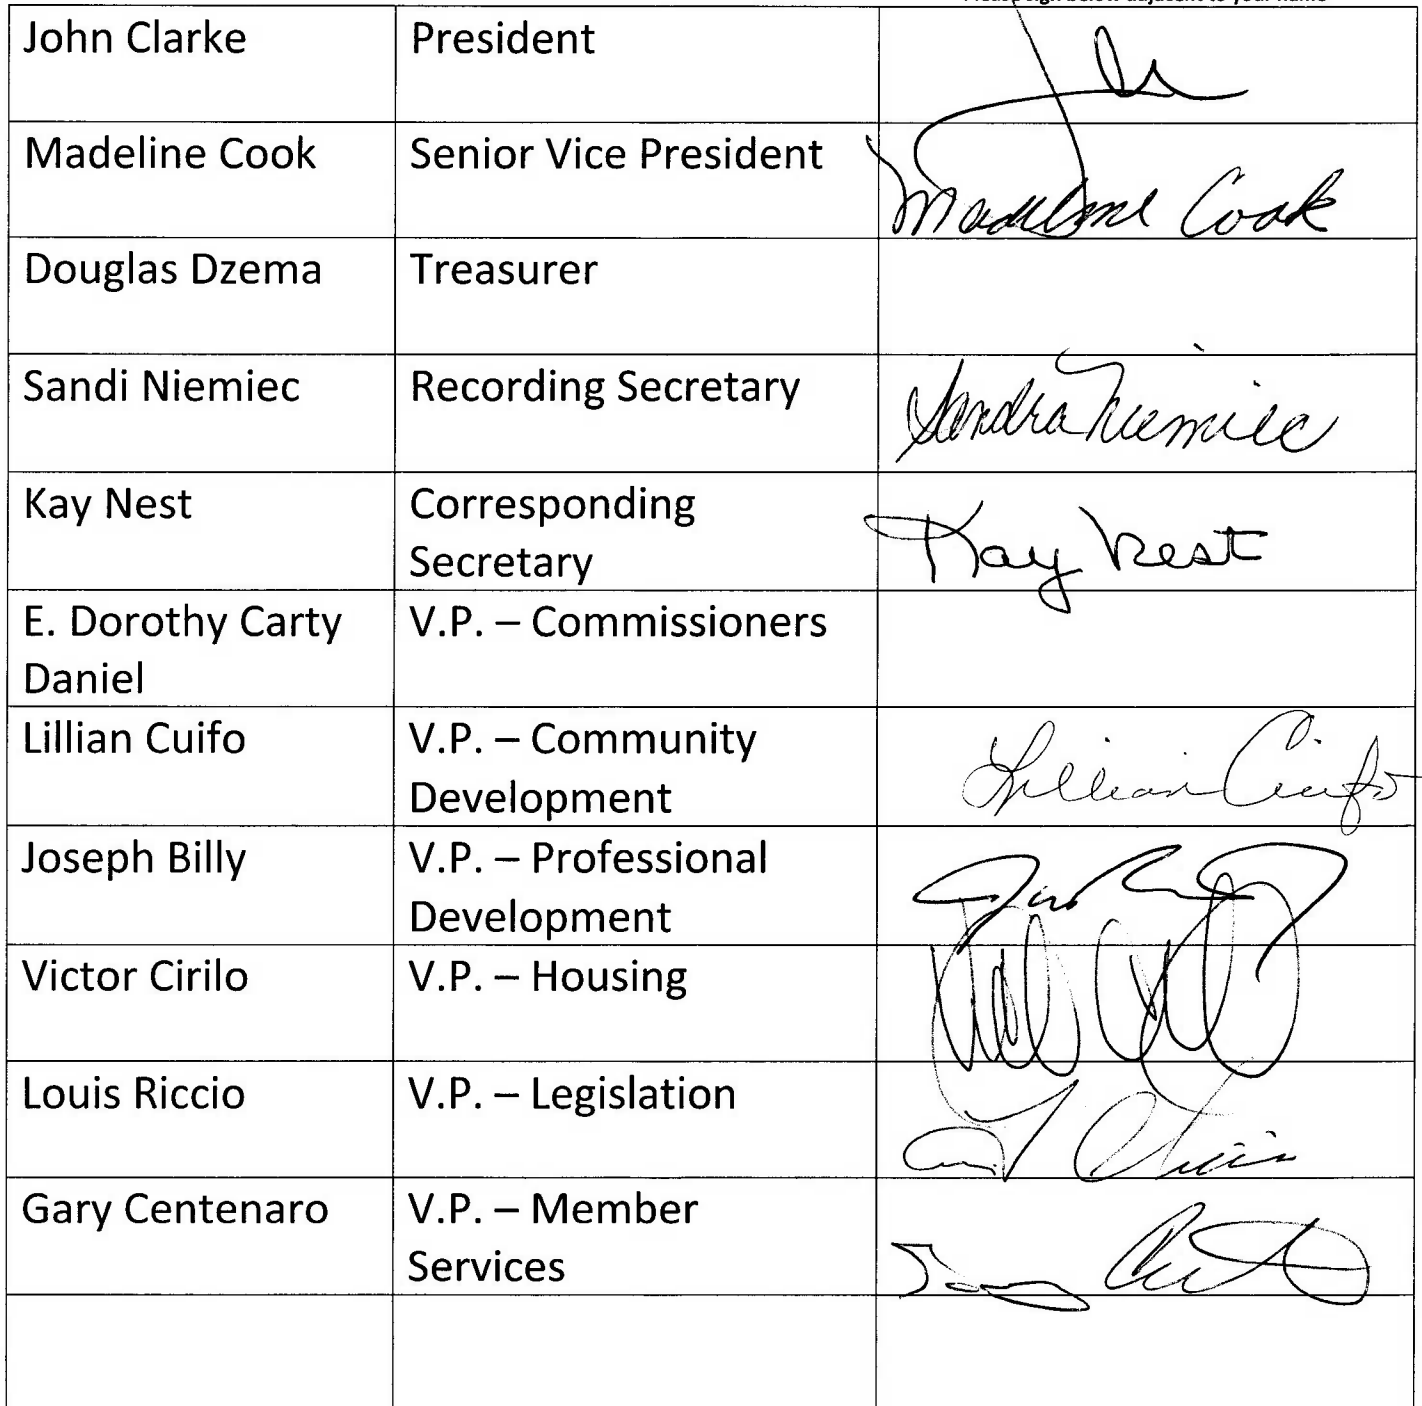 Please sign below adjacent to your name
John Clarke President
Madeline Cook Senior Vice President Madeline Cook
Douglas Dzema Treasurer
Sandi Niemiec Recording Secretary Sandra Niemiec
Kay Nest Corresponding
Secretary Kay Nest
E. Dorothy Carty V.P. – Commissioners
Daniel
Lillian Cuifo V.P. – Community
Development Lillian Cuifo
Joseph Billy V.P. – Professional
Development
Victor Cirilo V.P. – Housing
Louis Riccio V.P. – Legislation
Gary Centenaro V.P. – Member
Services